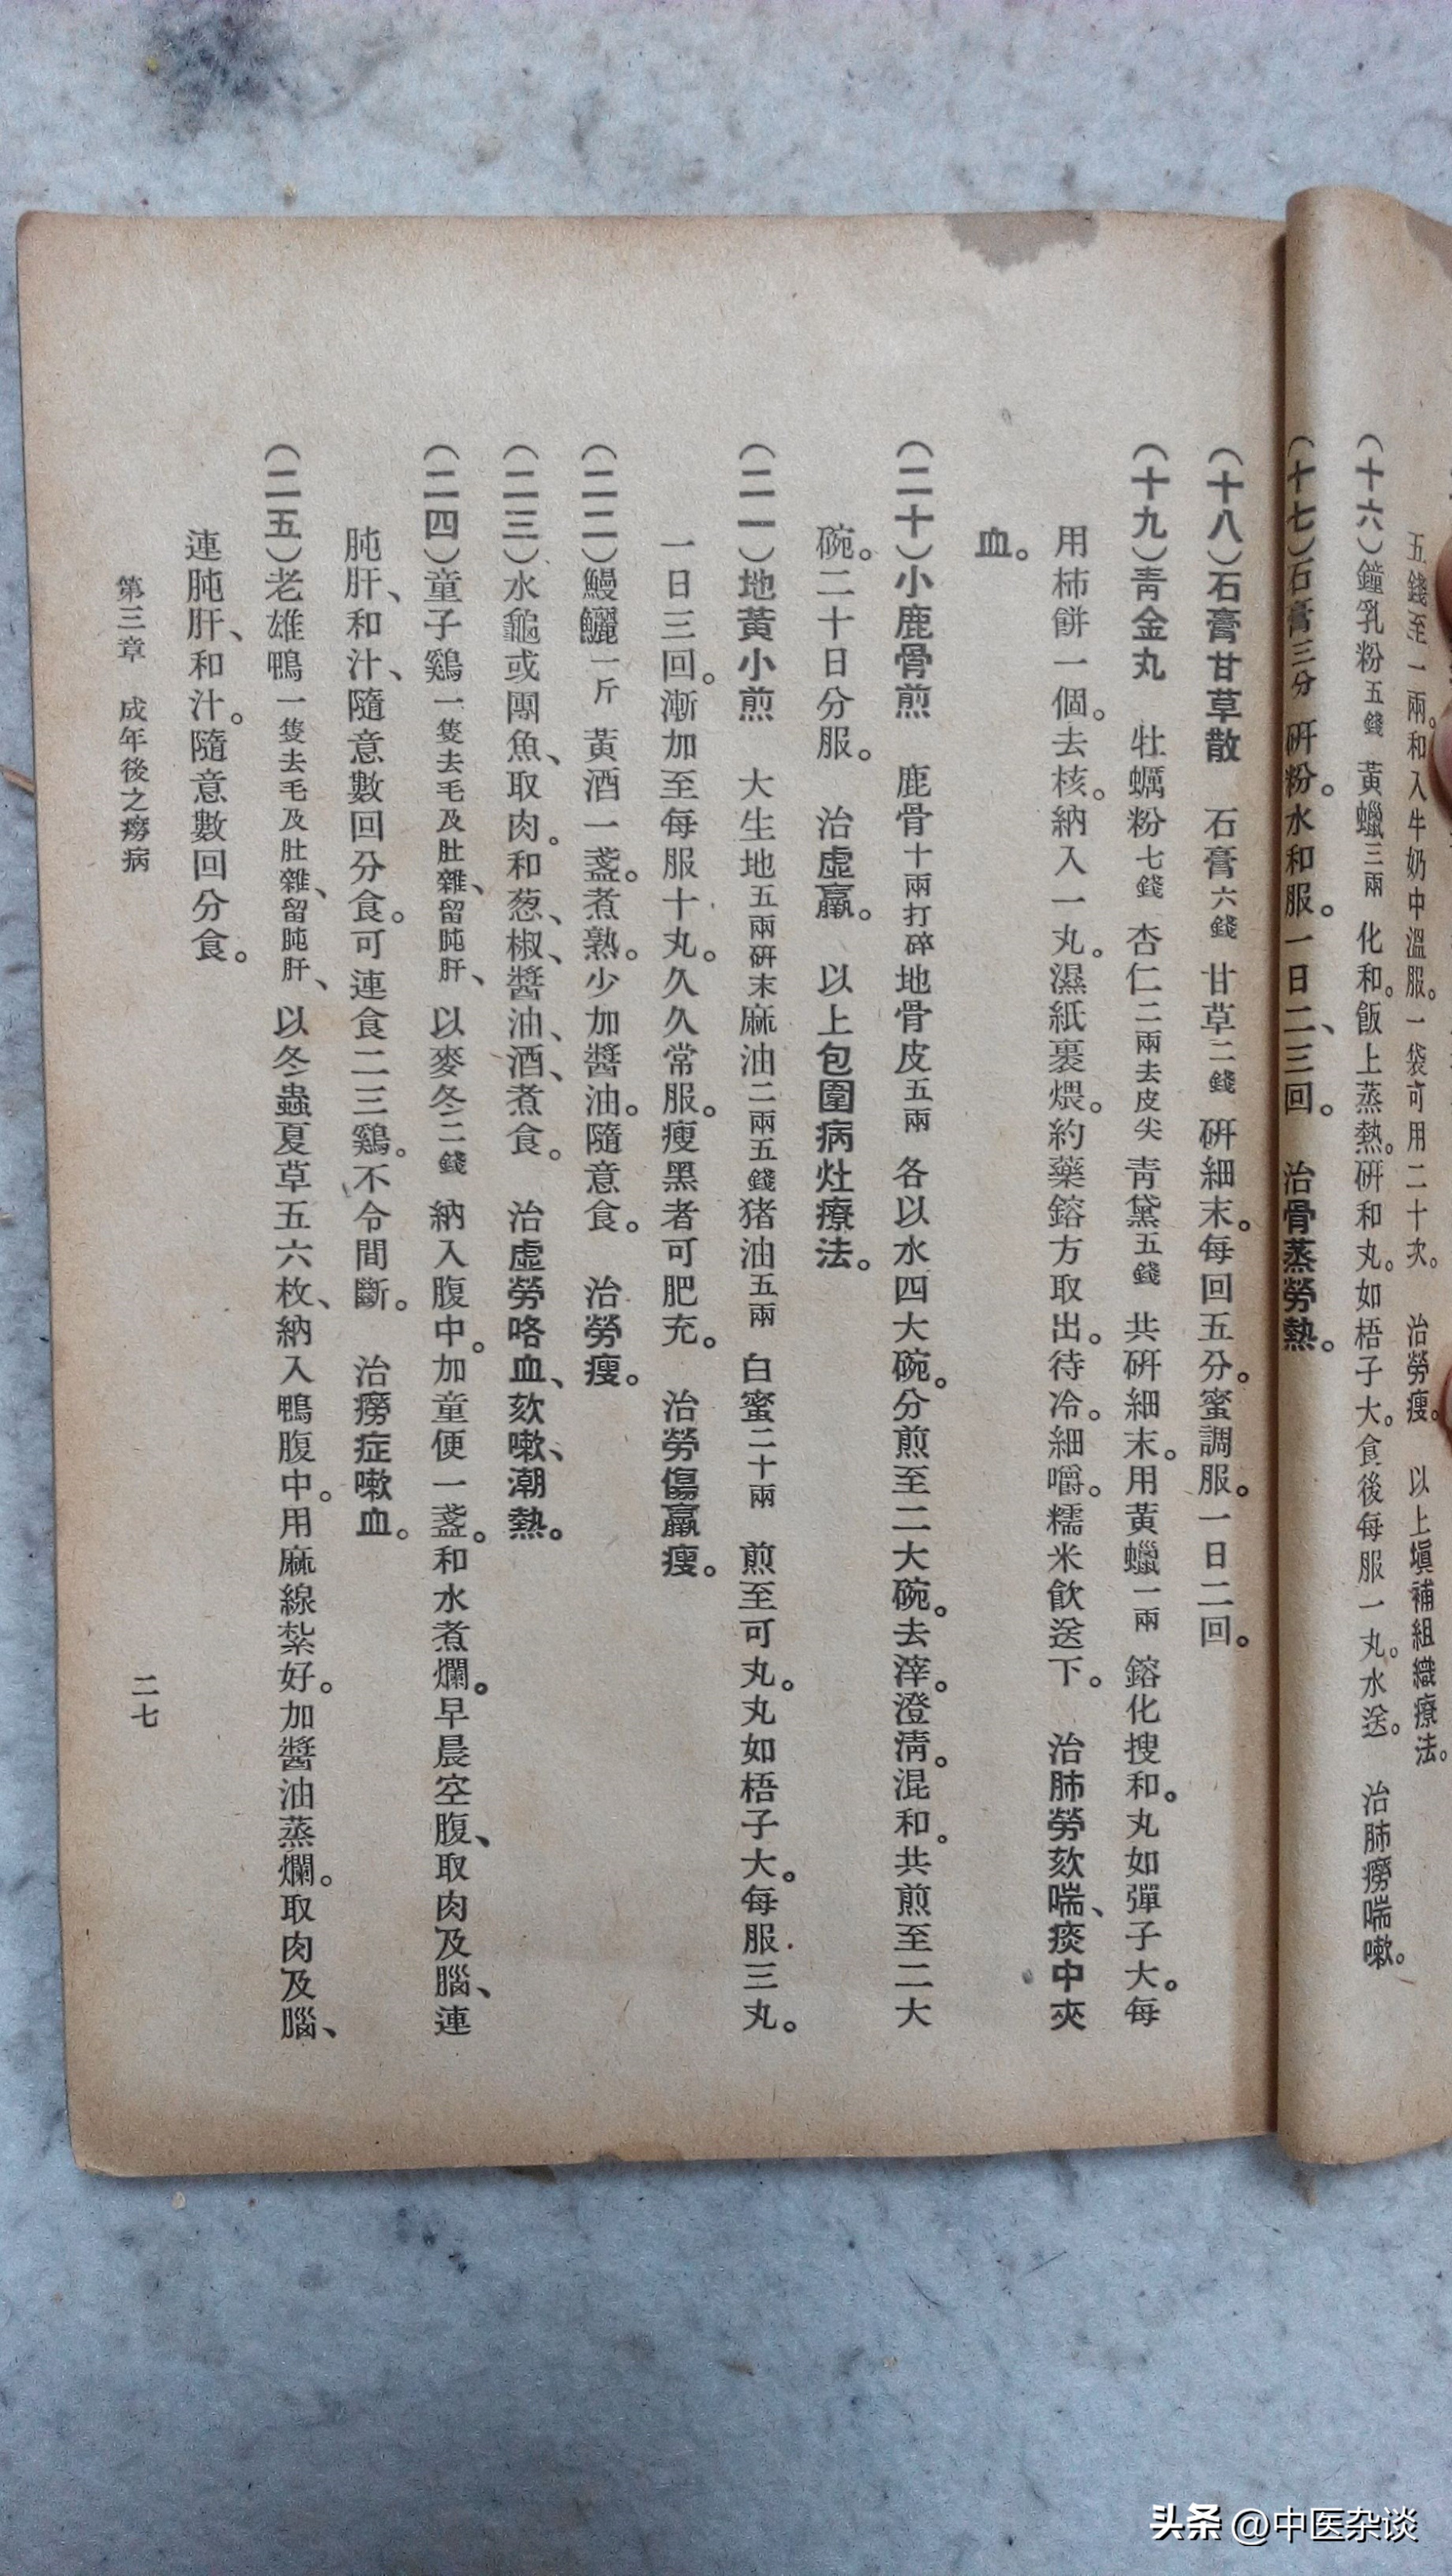 五錢至一兩。和入牛奶中溫服。一袋可用二十次。　治勞瘦。　以上塡補組織療法。
（十六）鐘乳粉五錢　黃蠟三兩　化和。飯上蒸熱。硏和丸。如梧子大。食後每服一丸。水送。　治肺癆喘嗽。
（十七）石膏三分　硏粉。水和服。一日二、三回。　治骨蒸勞熱。
（十八）石膏甘草散　石膏六錢　甘草二錢　硏細末。每回五分。蜜調服。一日二回。
（十九）靑金丸　牡蠣粉七錢　杏仁二兩去皮尖　靑黛五錢　共硏細末。用黃蠟一兩　鎔化搜和。丸如彈子大。每
用柿餅一個。去核。納入一丸。濕紙裹煨。約藥鎔方取出。待冷。細嚼。糯米飮送下。　治肺勞欬喘、痰中夾
血。
（二十）小鹿骨煎　鹿骨十兩打碎地骨皮五兩　各以水四大碗。分煎至二大碗。去滓。澄淸。混和。共煎至二大
碗。二十日分服。　治虛羸。　以上包圍病灶療法。
（二一）地黃小煎　大生地五兩硏末麻油二兩五錢猪油五兩　白蜜二十兩　煎至可丸。丸如梧子大。每服三丸。
一日三回。漸加至每服十丸。久久常服。瘦黑者可肥充。　治勞傷羸瘦。
（二二）鰻鱺一斤　黃酒一盞。煮熟。少加醬油。隨意食。　治勞瘦。
（二三）水龜或團魚、取肉。和葱、椒、醬油、酒、煮食。　治虛勞咯血、欬嗽、潮熱。
（二四）童子鷄一隻去毛及肚雜、留肫肝、以麥冬二錢　納入腹中。加童便一盞。和水煮爛。早晨空腹、取肉及腦、連
肫肝、和汁、隨意數回分食。可連食二三鷄。不令間斷。　治癆症嗽血。
（二五）老雄鴨一隻去毛及肚雜、留肫肝、以冬蟲夏草五六枚、納入鴨腹中。用麻線紮好。加醬油蒸爛。取肉及腦、
連肫肝、和汁。隨意數回分食。
第三章　成年後之癆病
二七
头条 @中医杂谈